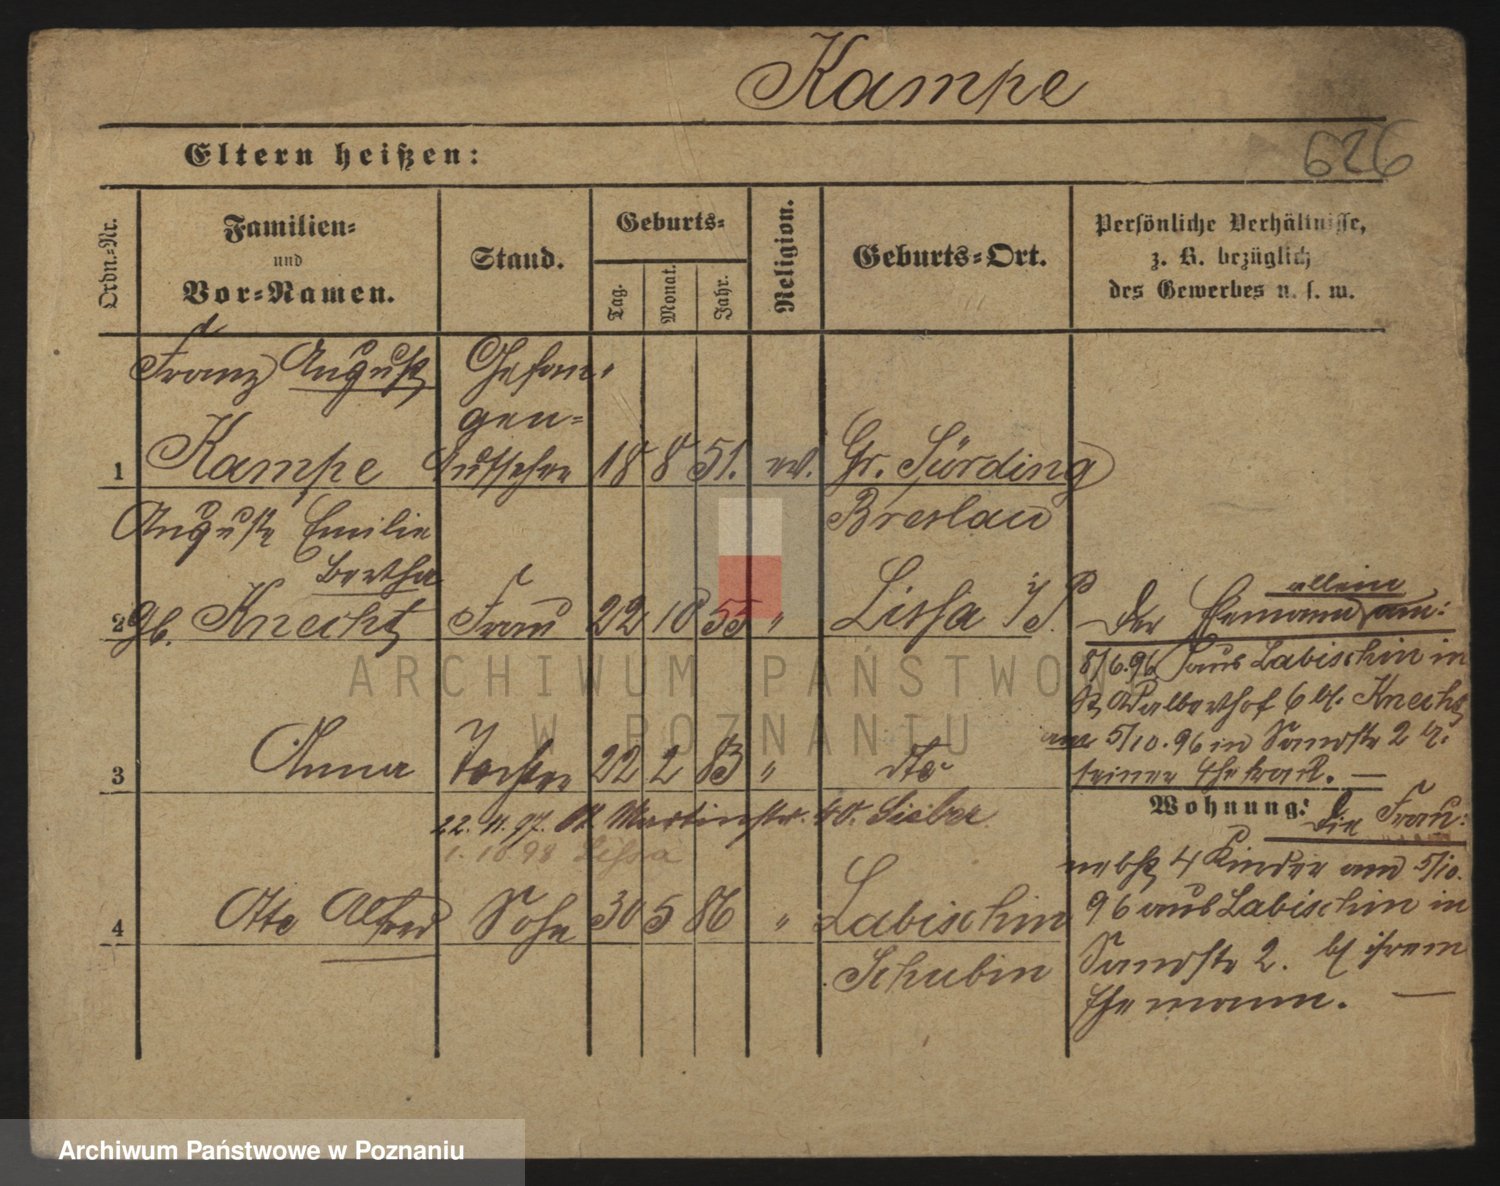 Kampe
626
Eltern heißen:
Ordn.-Nr.
Familien-
und
Vor-Namen.
Stand.
Geburts-
Tag.
Monat.
Jahr.
Religion.
Geburts-Ort.
Persönliche Verhältnisse,
z. B. bezüglich
des Gewerbes u. s. w.
Franz August Gefan-
gen-
1 Kampe Aufseher 18 8 51. ev. Gr. Sürding
Breslau
Auguste Emilie
Bertha
2 gb. Knecht Frau 22 10 55 " Lissa i/P.
Der Ehemann allein am:
8/6.96 aus Labischin in
St. Adalberthof 6 bei Knecht
am 5/10.96 in Sandstr 2 b.
seiner Ehefrau. —
3 Anna Tochter 22 2 83 " dto
22. 11. 97. St. Martinstr. 40. Sieber
1. 10 98 Lissa
Wohnung:
Die Frau:
nebst 4 Kinder am 5/10.
96 aus Labischin in
Sandstr 2. bei ihrem
Ehemann. —
4 Otto Alfred Sohn 30 5 86 " Labischin
Schubin
ARCHIWUM PAŃSTWOWE
W POZNANIU
Archiwum Państwowe w Poznaniu